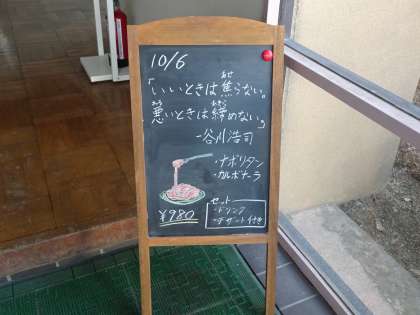 10/6
「いいときは焦らない。
悪いときは締めない」
―谷川浩司
・ナポリタン
・カルボナーラ
¥980
セット
・ドリンク
・デザート付き